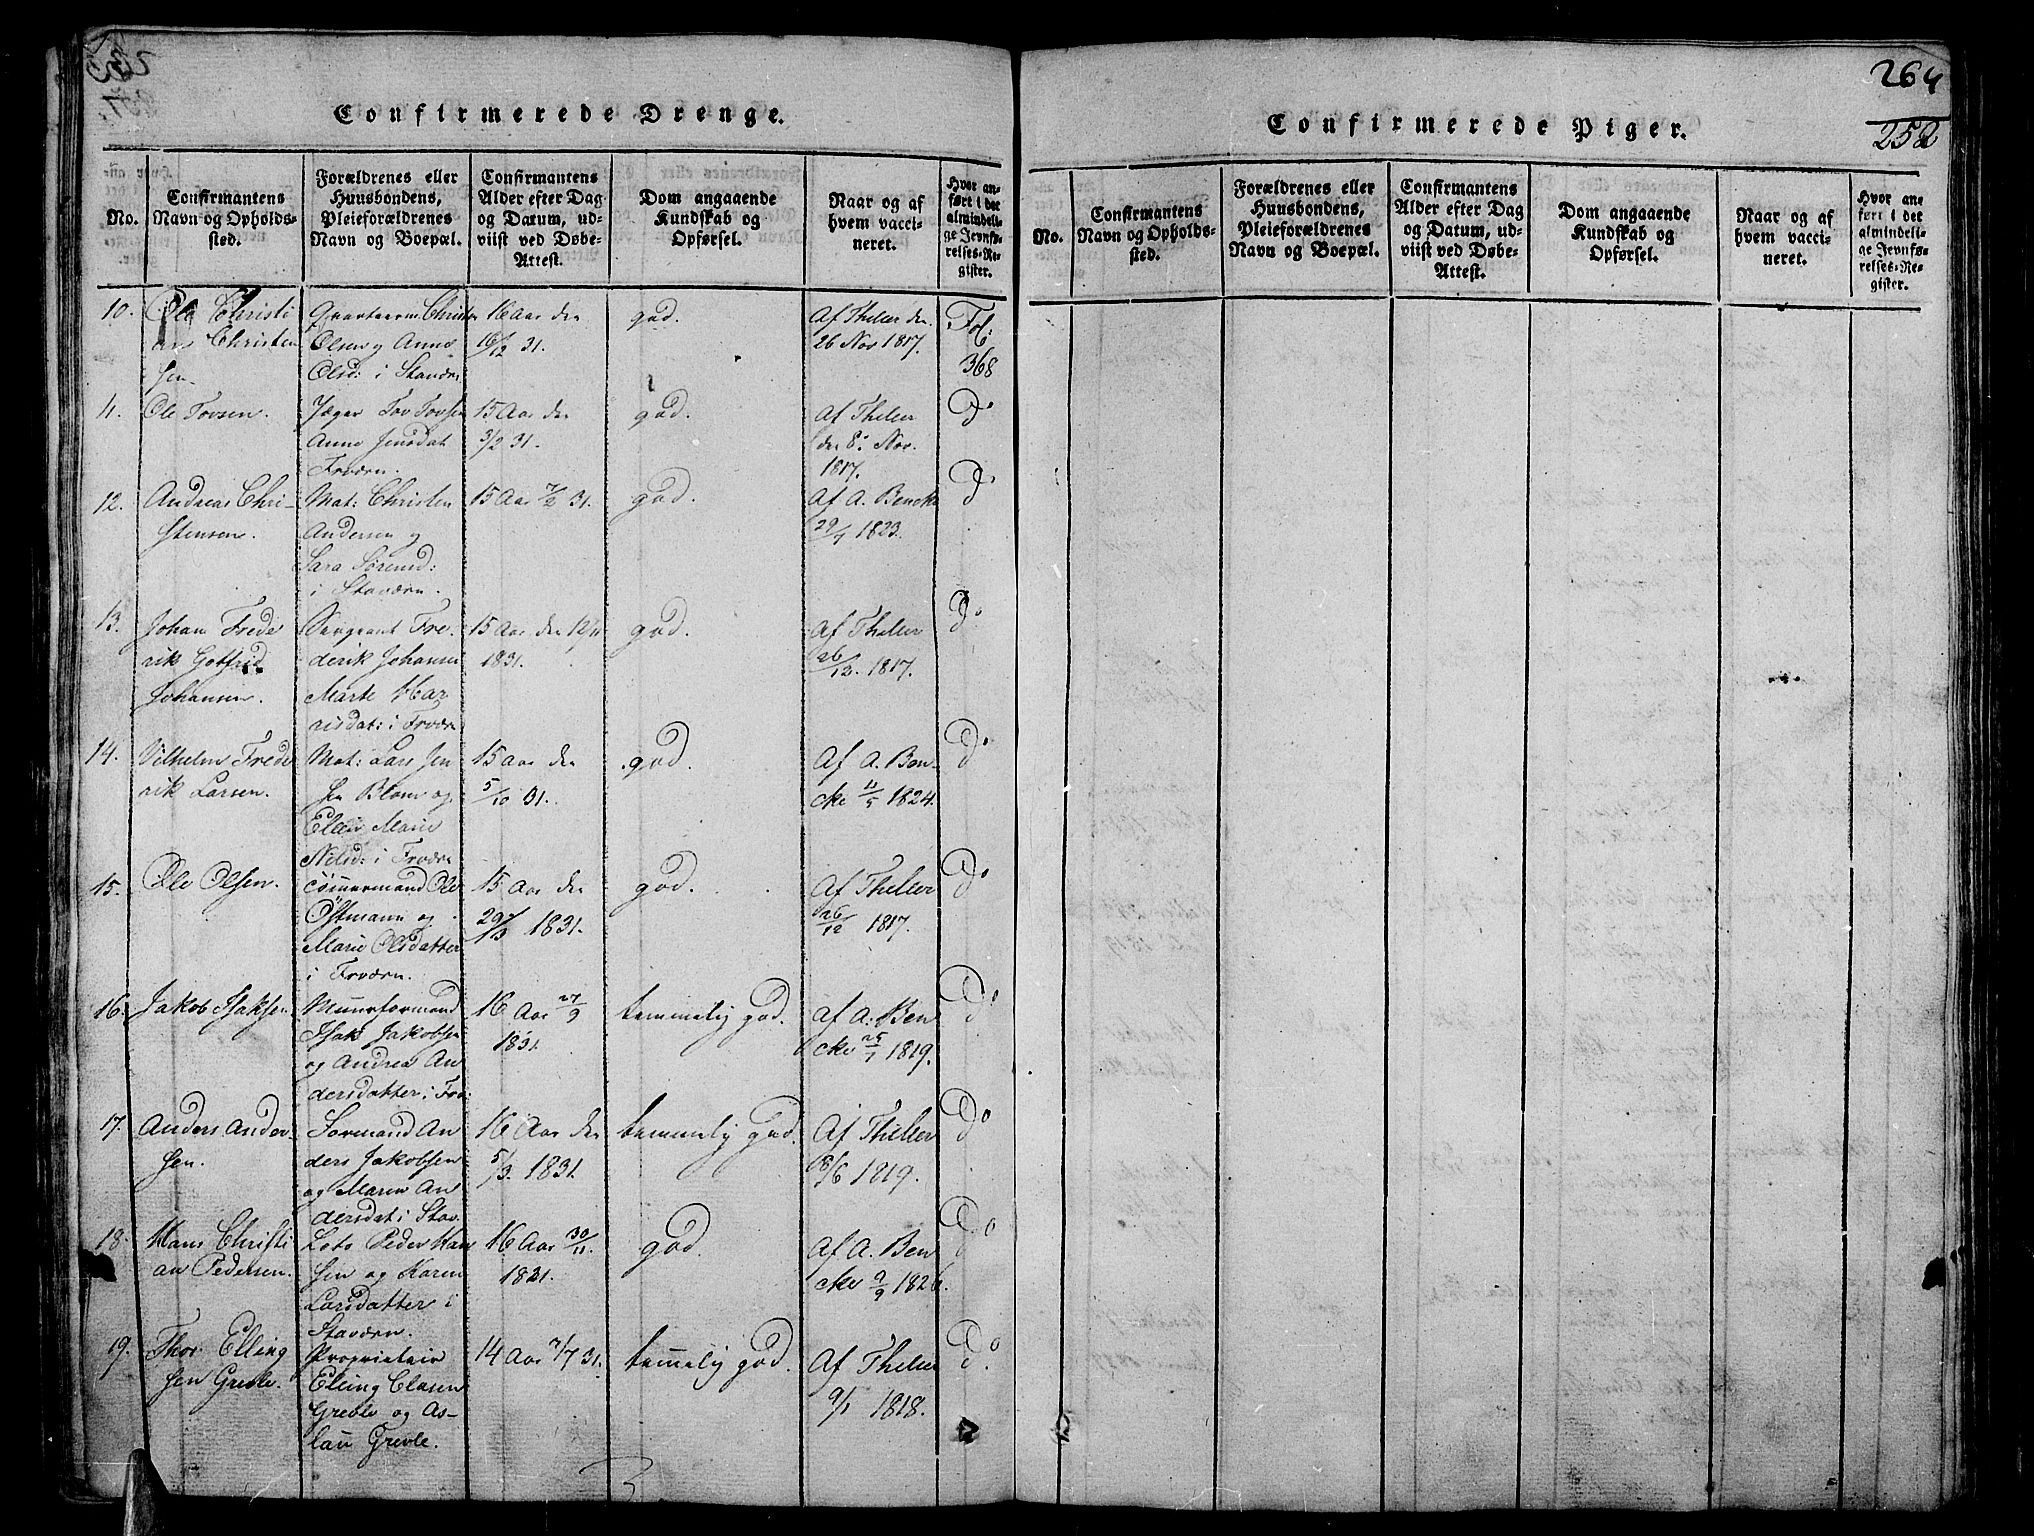 264
252
Confirmerede Drenge.
No.
Confirmantens
Navn og Opholds-
sted.
Forældrenes eller
Huusbondens,
Pleieforældrenes
Navn og Boepæl.
Confirmantens
Alder efter Dag
og Datum, ud-
viist ved Døbe-
Attest.
Dom angaaende
Kundskab og
Opførsel.
Naar og af
hvem vacci-
neret.
Hvor an-
ført i det
almindeli-
ge Jevnfø-
relses-Re-
gister.
10.
Ole Christi
an Christen
sen.
Christen
Olsen og Anne
Olsd: i Staværn
16 Aar den
16/2 31.
god.
Af Theller den
26 Nov 1817.
Fol:
368
11.
Ole Tovsen.
Jæger Tov Tovsen
Anne Jensdat
Frværn.
15 Aar den
3/2 31.
god.
Af Theller
den 8: Nov.
1817.
Do
12.
Andreas Chri-
stensen.
Mat: Christen
Andersen og
Sara Sørensd:
i Staværn.
15 Aar 7/2 31.
god.
Af A. Bencke
29/7 1823.
Do
13.
Johan Frede
rik Gotfrid
Johansen.
Sergeant Fre-
derik Johansen
Marte
i Frværn
15 Aar den 12/11
1831.
god.
Af Theller
26/12. 1817.
Do
14.
Vilhelm Frede
rik Larsen.
Mat: Lars Jen
sen Blom og
Marie
Nilsd: i Frværn
15 Aar den
5/10 31.
god.
Af A. Ben-
cke 11/5 1824.
Do
15.
Ole Olsen.
Tømmermand Ole
Østmann og
Marie Olsdatter
i Frværn.
15 Aar den
1831.
god.
Af Theller
26/12 1817.
Do
16.
Jakob Isaksen
Muurformand
Isak Jakobsen
og Andrea An
dersdatter i Frv:
16 Aar 27/9
1831.
temmelig god.
Af A. Ben
cke 25/7 1819.
Do
17.
Anders Ander-
sen.
Formand An
ders Jakobsen
og Maren An
dersdat i Stav.
16 Aar den
5/3. 1831.
temmelig god.
Af Theller
8/6 1819.
Do
18.
Hans Christi
an Pedersen.
Lots Peder Han
sen og Karen
Larsdatter i
Staværn.
16 Aar 30/11.
1831.
god.
Af A. Ben
cke 9/9 1826.
Do
19.
Thor Elling
sen Grevle.
Proprietair
Elling Clasen
Grevle og As-
lau Grevle.
14 Aar 7/7 31.
temmelig god.
Af Theller
9/1 1818.
Do
Confirmerede Piger.
No.
Confirmantens
Navn og Opholds-
sted.
Forældrenes eller
Huusbondens,
Pleieforældrenes
Navn og Boepæl.
Confirmantens
Alder efter Dag
og Datum, ud-
viist ved Døbe-
Attest.
Dom angaaende
Kundskab og
Opførsel.
Naar og af
hvem vacci-
neret.
Hvor an-
ført i det
almindeli-
ge Jevnfø-
relses-Re-
gister.